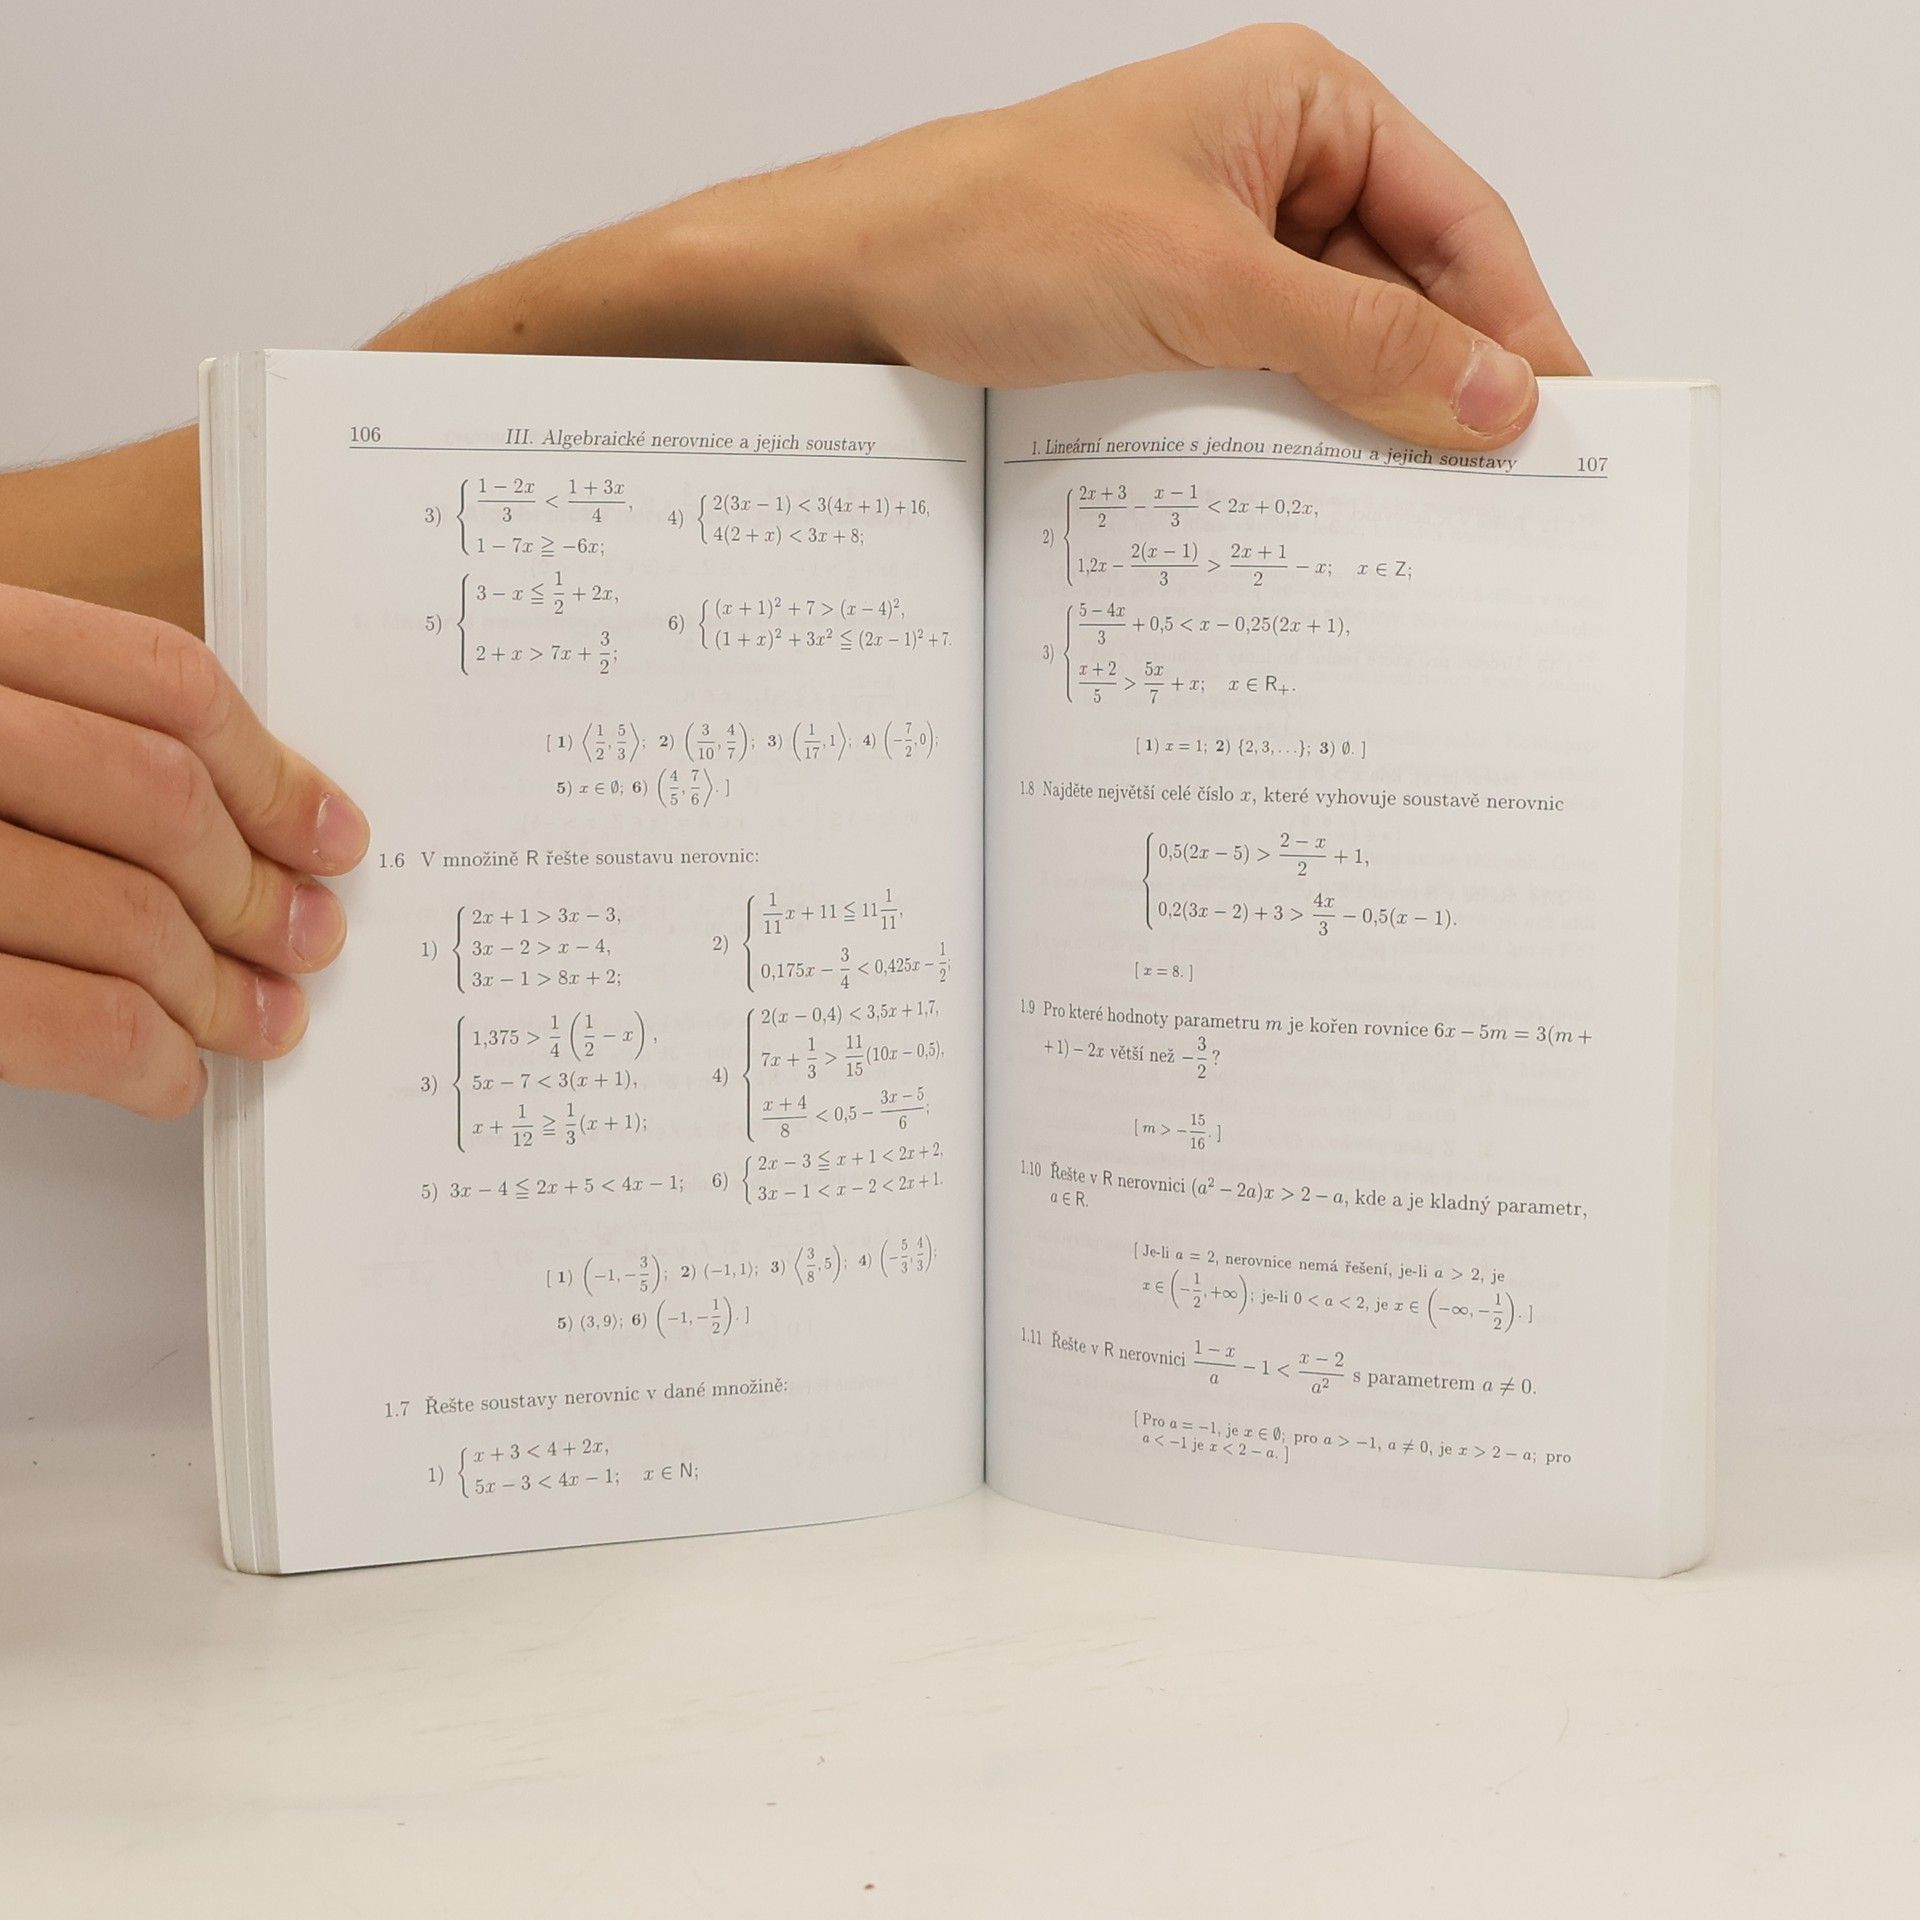 106 III. Algebraické nerovnice a jejich soustavy
3) { (1 − 2x)/3 < (1 + 3x)/4,
1 − 7x ≧ −6x;
4) { 2(3x − 1) < 3(4x + 1) + 16,
4(2 + x) < 3x + 8;
5) { 3 − x ≦ 1/2 + 2x,
2 + x > 7x + 3/2;
6) { (x + 1)² + 7 > (x − 4)²,
(1 + x)² + 3x² ≦ (2x − 1)² + 7.
[ 1) ⟨1/2, 5/3⟩; 2) (3/10, 4/7); 3) (1/17, 1⟩; 4) (−7/2, 0);
5) x ∈ ∅; 6) (4/5, 7/6⟩. ]
1.6 V množině R řešte soustavu nerovnic:
1) { 2x + 1 > 3x − 3,
3x − 2 > x − 4,
3x − 1 > 8x + 2;
2) { 1/11 x + 11 ≦ 11 1/11,
0,175x − 3/4 < 0,425x − 1/2;
3) { 1,375 > 1/4 (1/2 − x),
5x − 7 < 3(x + 1),
x + 1/12 ≧ 1/3 (x + 1);
4) { 2(x − 0,4) < 3,5x + 1,7,
7x + 1/3 > 11/15 (10x − 0,5),
(x + 4)/8 < 0,5 − (3x − 5)/6;
5) 3x − 4 ≦ 2x + 5 < 4x − 1;
6) { 2x − 3 ≦ x + 1 < 2x + 2,
3x − 1 < x − 2 < 2x + 1.
[ 1) (−1, −3/5); 2) (−1, 1⟩; 3) ⟨3/8, 5); 4) (−5/3, 4/3);
5) (3, 9⟩; 6) (−1, −1/2). ]
1.7 Řešte soustavy nerovnic v dané množině:
1) { x + 3 < 4 + 2x,
5x − 3 < 4x − 1; x ∈ N;
I. Lineární nerovnice s jednou neznámou a jejich soustavy 107
2) { (2x + 3)/2 − (x − 1)/3 < 2x + 0,2x,
1,2x − 2(x − 1)/3 > (2x + 1)/2 − x; x ∈ Z;
3) { (5 − 4x)/3 + 0,5 < x − 0,25(2x + 1),
(x + 2)/5 > 5x/7 + x; x ∈ R₊.
[ 1) x = 1; 2) {2, 3, . . .}; 3) ∅. ]
1.8 Najděte největší celé číslo x, které vyhovuje soustavě nerovnic
{ 0,5(2x − 5) > (2 − x)/2 + 1,
0,2(3x − 2) + 3 > 4x/3 − 0,5(x − 1).
[ x = 8. ]
1.9 Pro které hodnoty parametru m je kořen rovnice 6x − 5m = 3(m +
+1) − 2x větší než −3/2 ?
[ m > −15/16. ]
1.10 Řešte v R nerovnici (a² − 2a)x > 2 − a, kde a je kladný parametr,
a ∈ R.
[ Je-li a = 2, nerovnice nemá řešení, je-li a > 2, je
x ∈ (−1/2, +∞); je-li 0 < a < 2, je x ∈ (−∞, −1/2). ]
1.11 Řešte v R nerovnici (1 − x)/a − 1 < (x − 2)/a² s parametrem a ≠ 0.
[ Pro a = −1, je x ∈ ∅; pro a > −1, a ≠ 0, je x > 2 − a; pro
a < −1 je x < 2 − a. ]